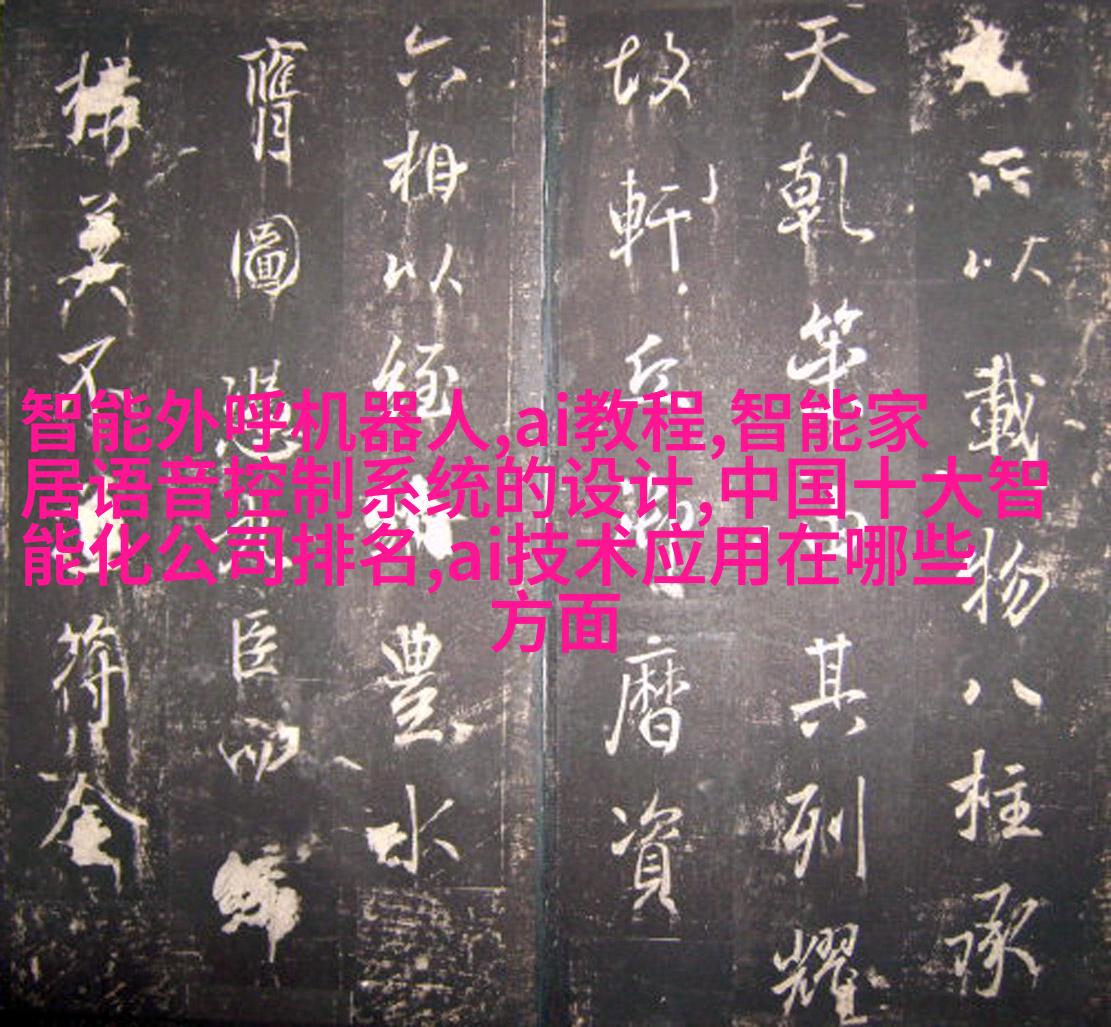 所以載物八柱承
天乾其列耀
故軒丘曆資
六相以經豐水
膺圖臣
搆美不符奎
智能外呼机器人,ai教程,智能家
居语音控制系统的设计,中国十大智
能化公司排名,ai技术应用在哪些
方面